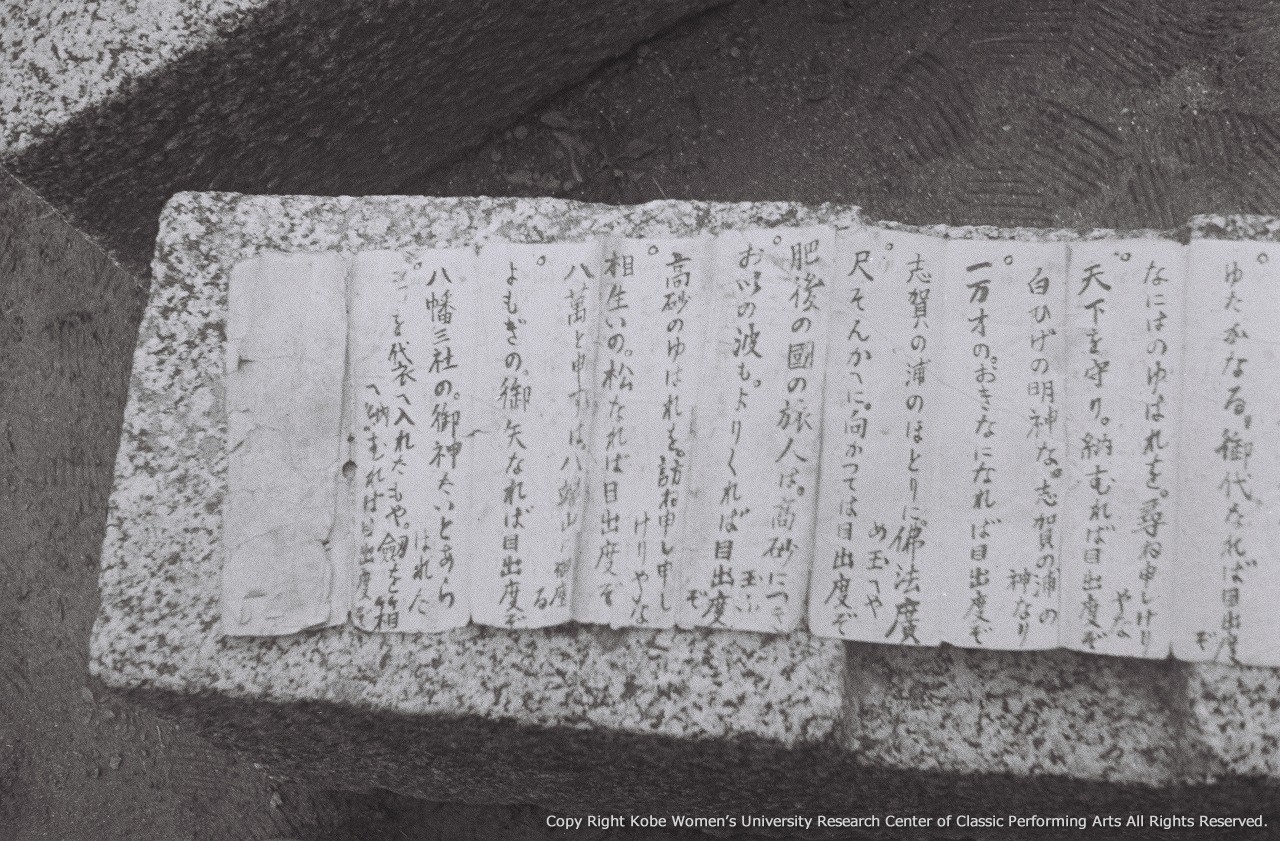 ゆたかなる。御代なれば目出度
ぞ
なにはのゆはれを。尋ね申しけり
やな
天下を守り。納むれば目出度ぞ
白ひげの明神な。志賀の浦の
神なり
一万才の。おきなになれば目出度ぞ
志賀の浦のほとりに。佛法廣
め玉へや
尺そんかへに。向かつては目出度ぞ
肥後の國の旅人は。高砂につき
玉ふ
お以の波も。よりくれば目出度
ぞ
高砂のゆはれを。訪ね申し申し
けりやな
相生いの。松なれば目出度ぞ
八萬と申すは。八
る
よもぎの。御矢なれば目出度ぞ
八幡三社の。御神たいとあら
はれた
を代衣へ入れたもや。劔を箱
へ納むれば目出度ぞ
Copy Right Kobe Women's University Research Center of Classic Performing Arts All Rights Reserved.